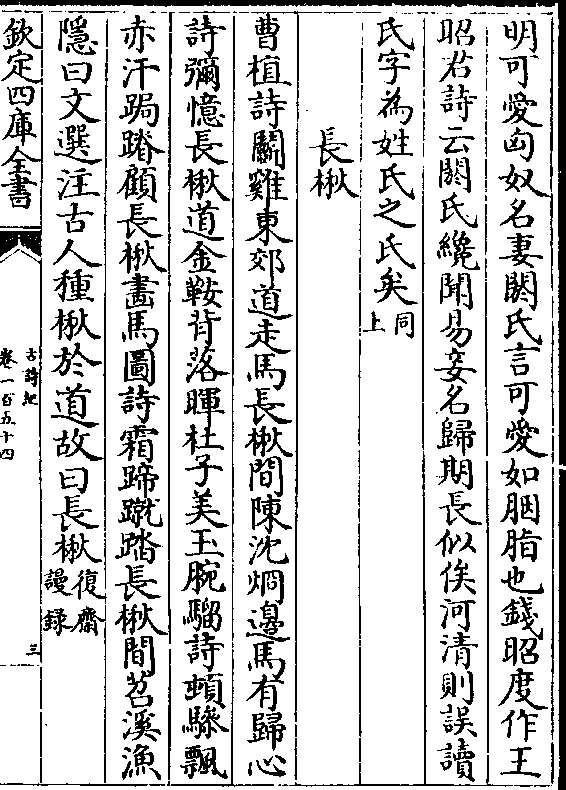 明可愛匈奴名妻閼氏言可愛如胭脂也錢昭度作王
昭君詩云閼氏纔聞易妾名歸期長似俟河清則誤讀
氏字為姓氏之氏矣同上
長楸
曹植詩鬬雞東郊道走馬長楸間陳沈炯邊馬有歸心
詩彌憶長楸道金鞍背落暉杜子美玉腕騮詩頓驂飄
赤汗跼蹐顧長楸畫馬圖詩霜蹄蹴踏長楸間苕溪漁
隱曰文選注古人種楸於道故曰長楸復齋謾録
欽定四庫全書
古詩紀
卷一百五十四
三